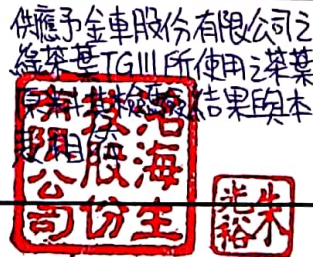 供應予金車股份有限公司之
綠茶葉TG111所使用之茶葉
原料檢驗結果與本
海生
技股份
有限公司
朱
裕